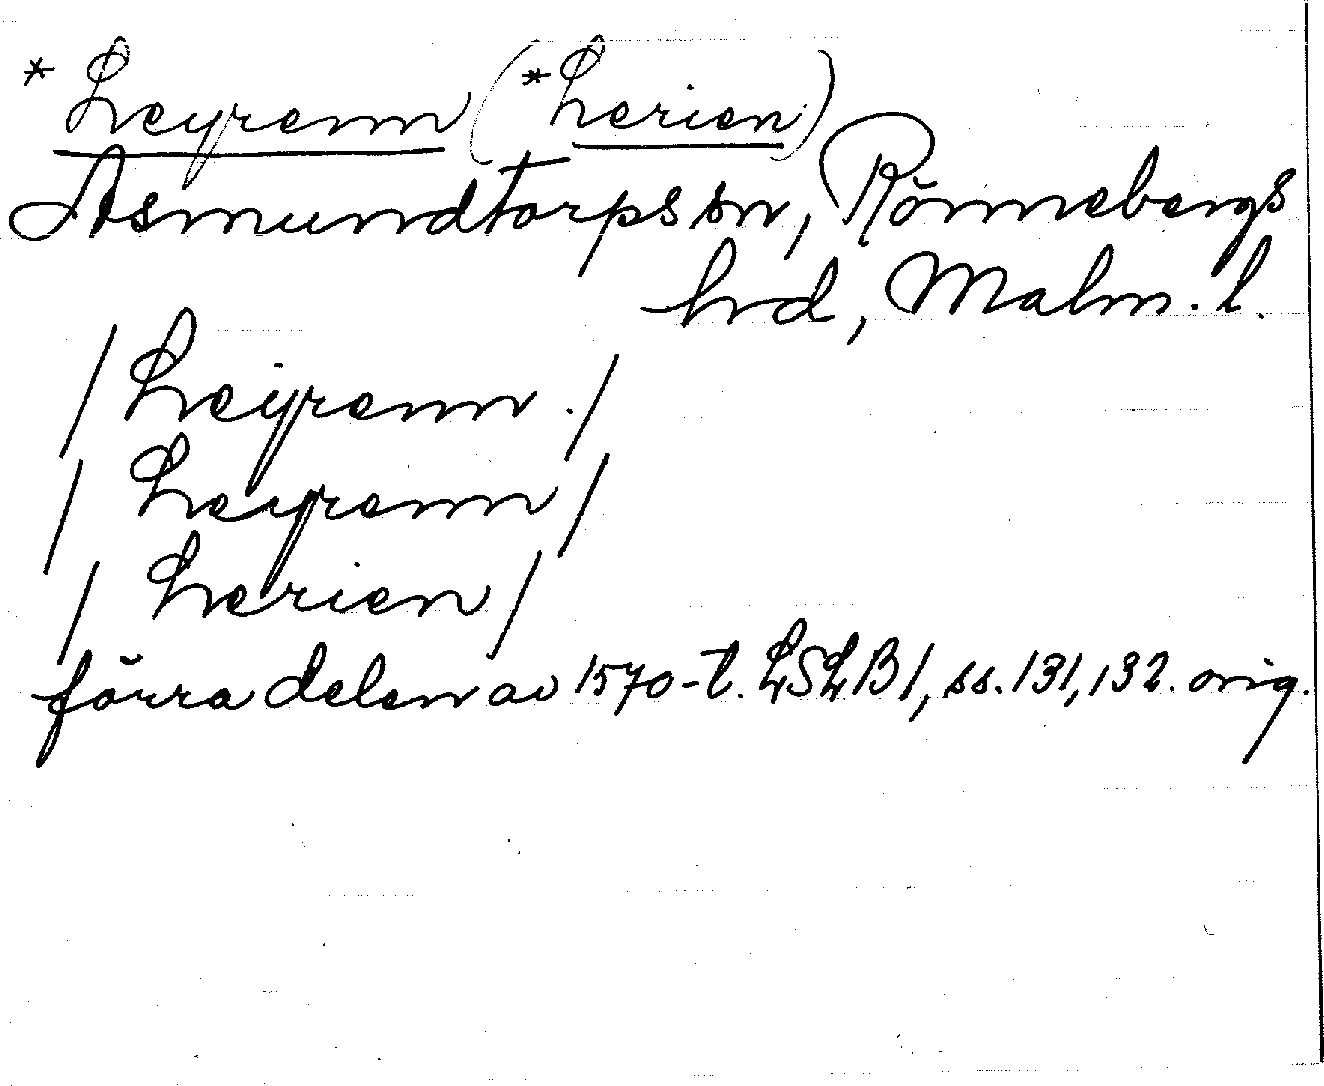 * Leyrenn (*Lerien)
Asmundtorps sn, Rönnebergs
hrd, Malm. l.
/ Leÿrenn./
/ Leyrenn /
/ Lerien /
förra delen av 1570-t. LSLB 1, ss. 131, 132. orig.